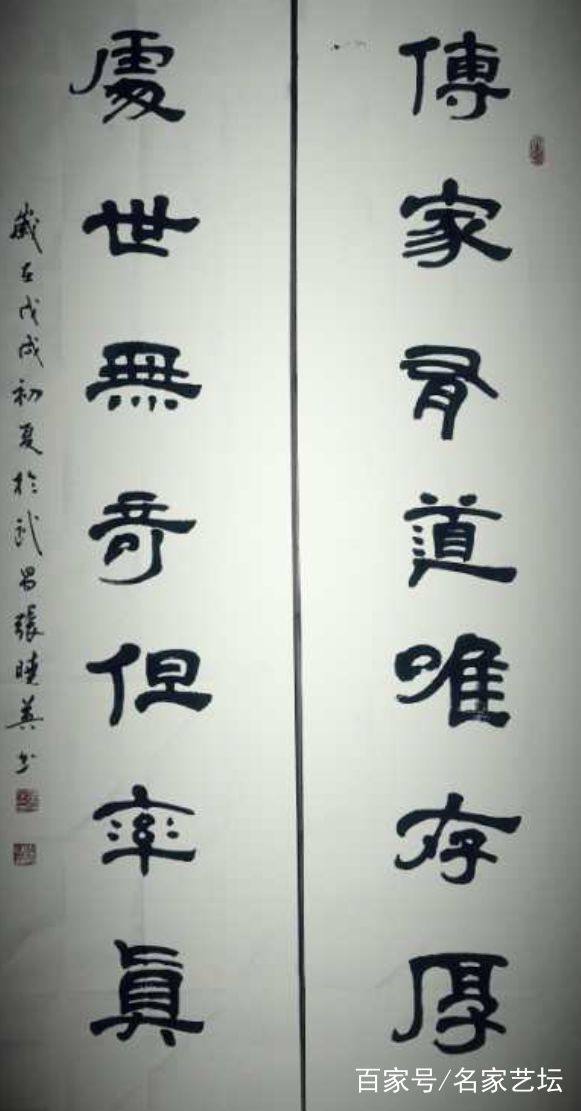 傳家有道唯存厚
處世無奇但率真
歲在戊戌初夏於武昌張曉英书
百家号/名家艺坛